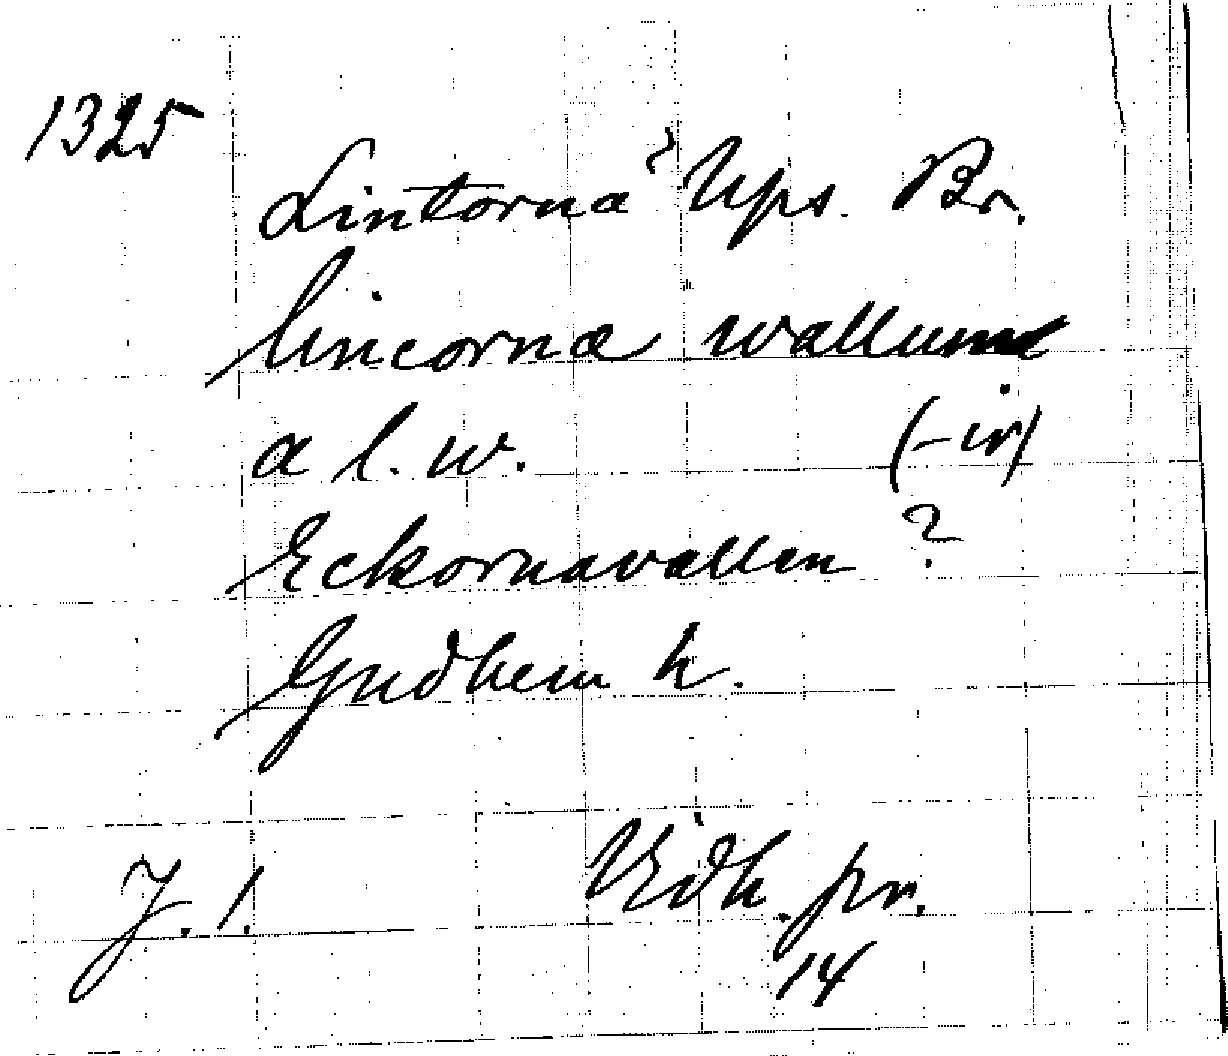 1325
Lintorna? Ups. Br.
lincorna wallum
a l. w. (-ir)
Eckornavallen ?
Gudhem h.
J. 1. Vidh. pr.
14